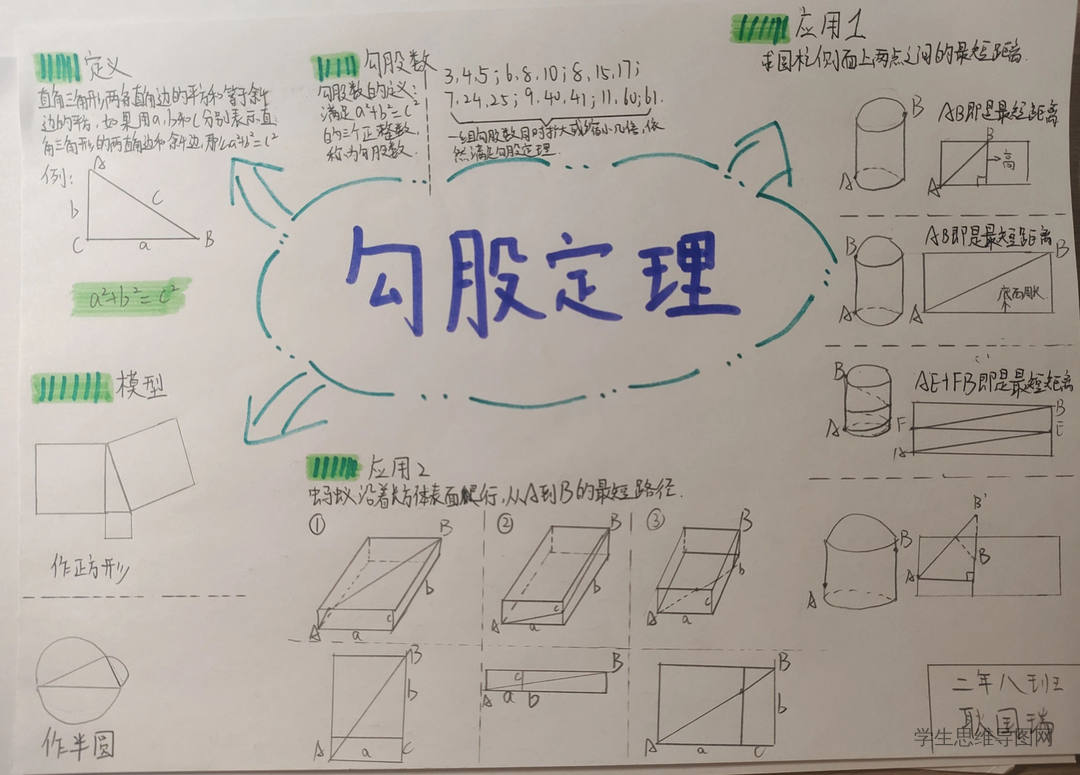 定义
直角三角形两条直角边的平方和等于斜
边的平方,如果用a,b和c分别表示直
角三角形的两直角边和斜边,那么a²+b²=c²
例:
A
b
c
C
a
B
a²+b²=c²
模型
作正方形
作半圆
勾股数
勾股数的定义:
满足a²+b²=c²
的三个正整数,
称为勾股数.
3,4,5;6,8,10;8,15,17;
7,24,25;9,40,41;11,60,61.
一组勾股数同时扩大或缩小几倍,依
然满足勾股定理.
勾股定理
应用1
求圆柱侧面上两点之间的最短距离.
AB即是最短距离
B
A
B
高
A
AB即是最短距离
B
A
B
底面周长
A
AE+FB即是最短距离
B
A
B
F
E
A
B
A
B'
B
A
应用2
蚂蚁沿着长方体表面爬行,从A到B的最短路径.
① B
b
c
A
a
② B
b
c
A
a
③ B
b
c
A
a
B
b
A
a
C
B
c
A
a
b
B
b
A
a
C
二年八班
耿国瑞
学生思维导图网